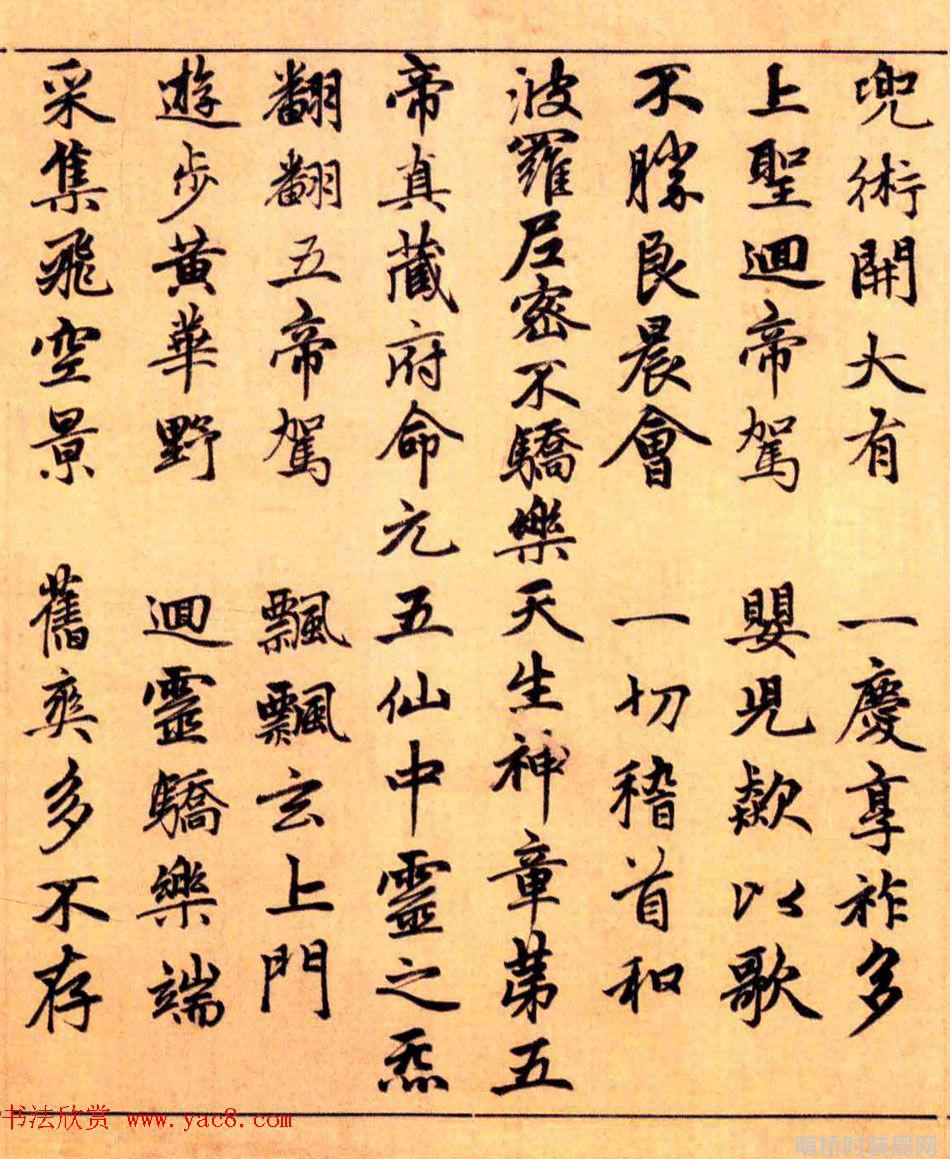 兜術開大有 一慶享祚多
上聖迴帝駕 嬰兒歘以歌
不勝良晨會 一切稽首和
波羅尼密不驕樂天生神章第五
帝真藏府命元五仙中靈之炁
翻翻五帝駕 飄飄玄上門
遊步黃華野 迴靈驕樂端
采集飛空景 舊爽多不存
书法欣赏 www.yac8.com
萌桥时装周网